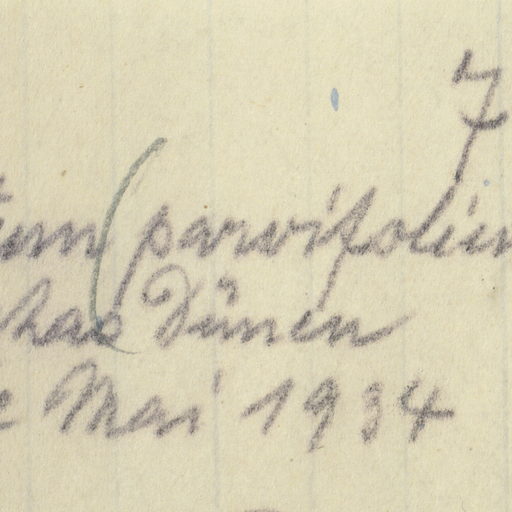 7
(parvifolium
Dünen
Mai 1934